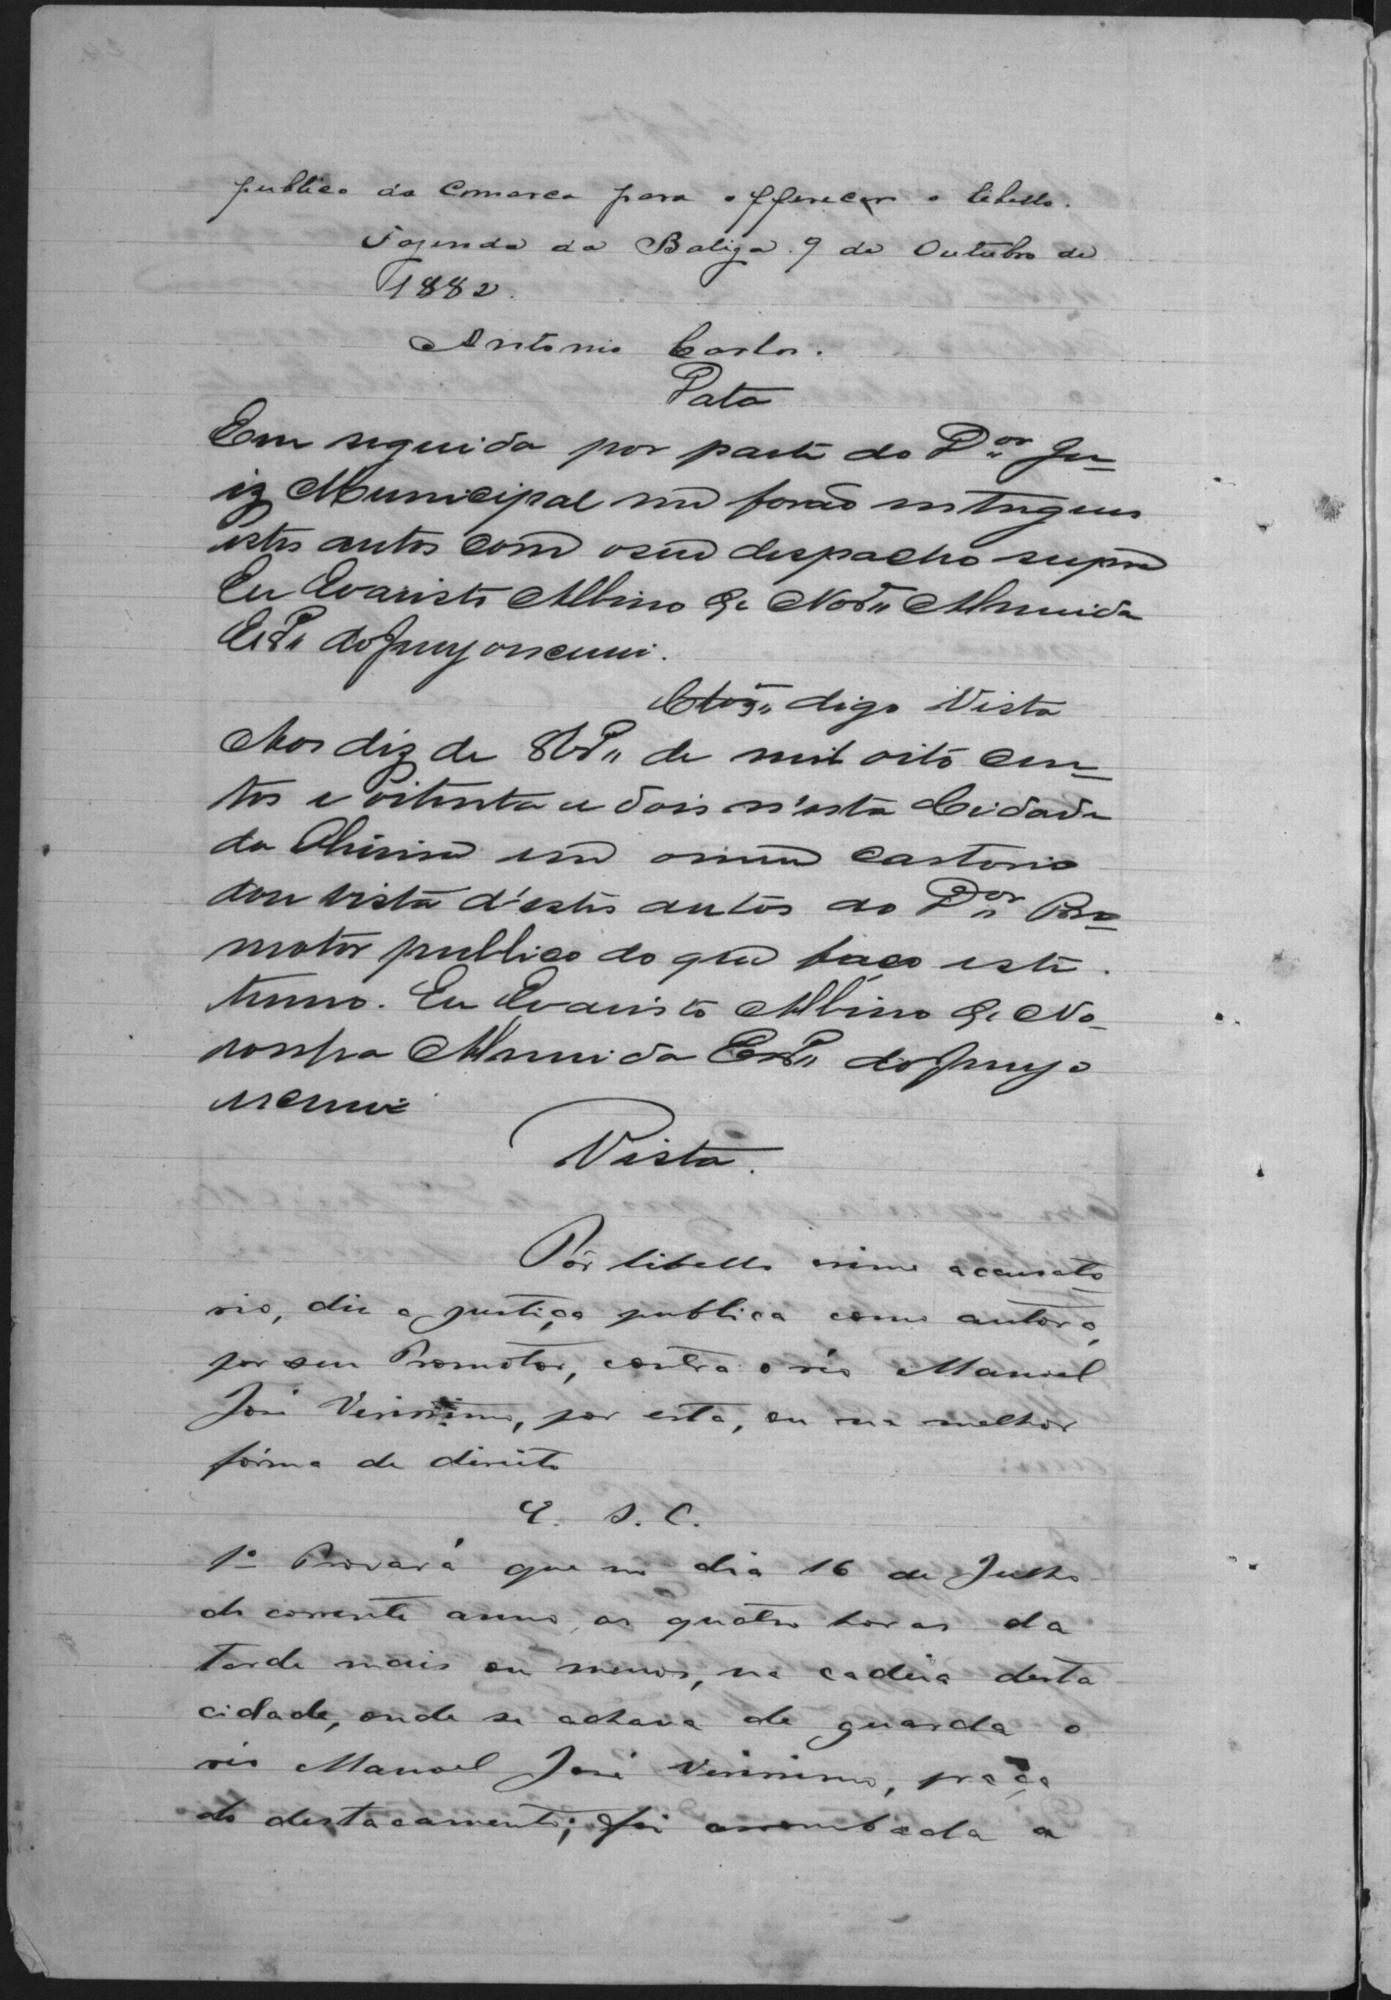 publico da Comarca para offerecer o libello.
Fazenda da Batiga 9 de Outubro de
1882.
Antonio Carlos.
Data
Em seguida por parte do Dor Ju-
iz Municipal me forão entregues
estes autos com o seu despacho supra
Eu Evaristo Albino de Nora Almeida
do Jury escrevi.
Clos digo Vista
Aos diz de 8bro de mil oito cen-
tos e oitenta e dois n'esta Cidade
da em o meu cartorio
dou vista d'estes autos ao Dor Pro-
motor publico do que faço este
termo. Eu Evaristo Albino de No-
ronha Almeida do Jury o
escrevi
Vista.
Por libello crime accusato-
rio, diz a justiça publica como autora,
por seu Promotor, contra o réo Manoel
José Verissimo, por esta, ou na melhor
fórma de direito
E. S. C.
1º Provará que no dia 16 de Julho
do corrente anno, as quatro horas da
tarde mais ou menos, na cadeia desta
cidade, onde se achava de guarda o
réo Manoel José Verissimo, praça
do destacamento; foi arrombada a